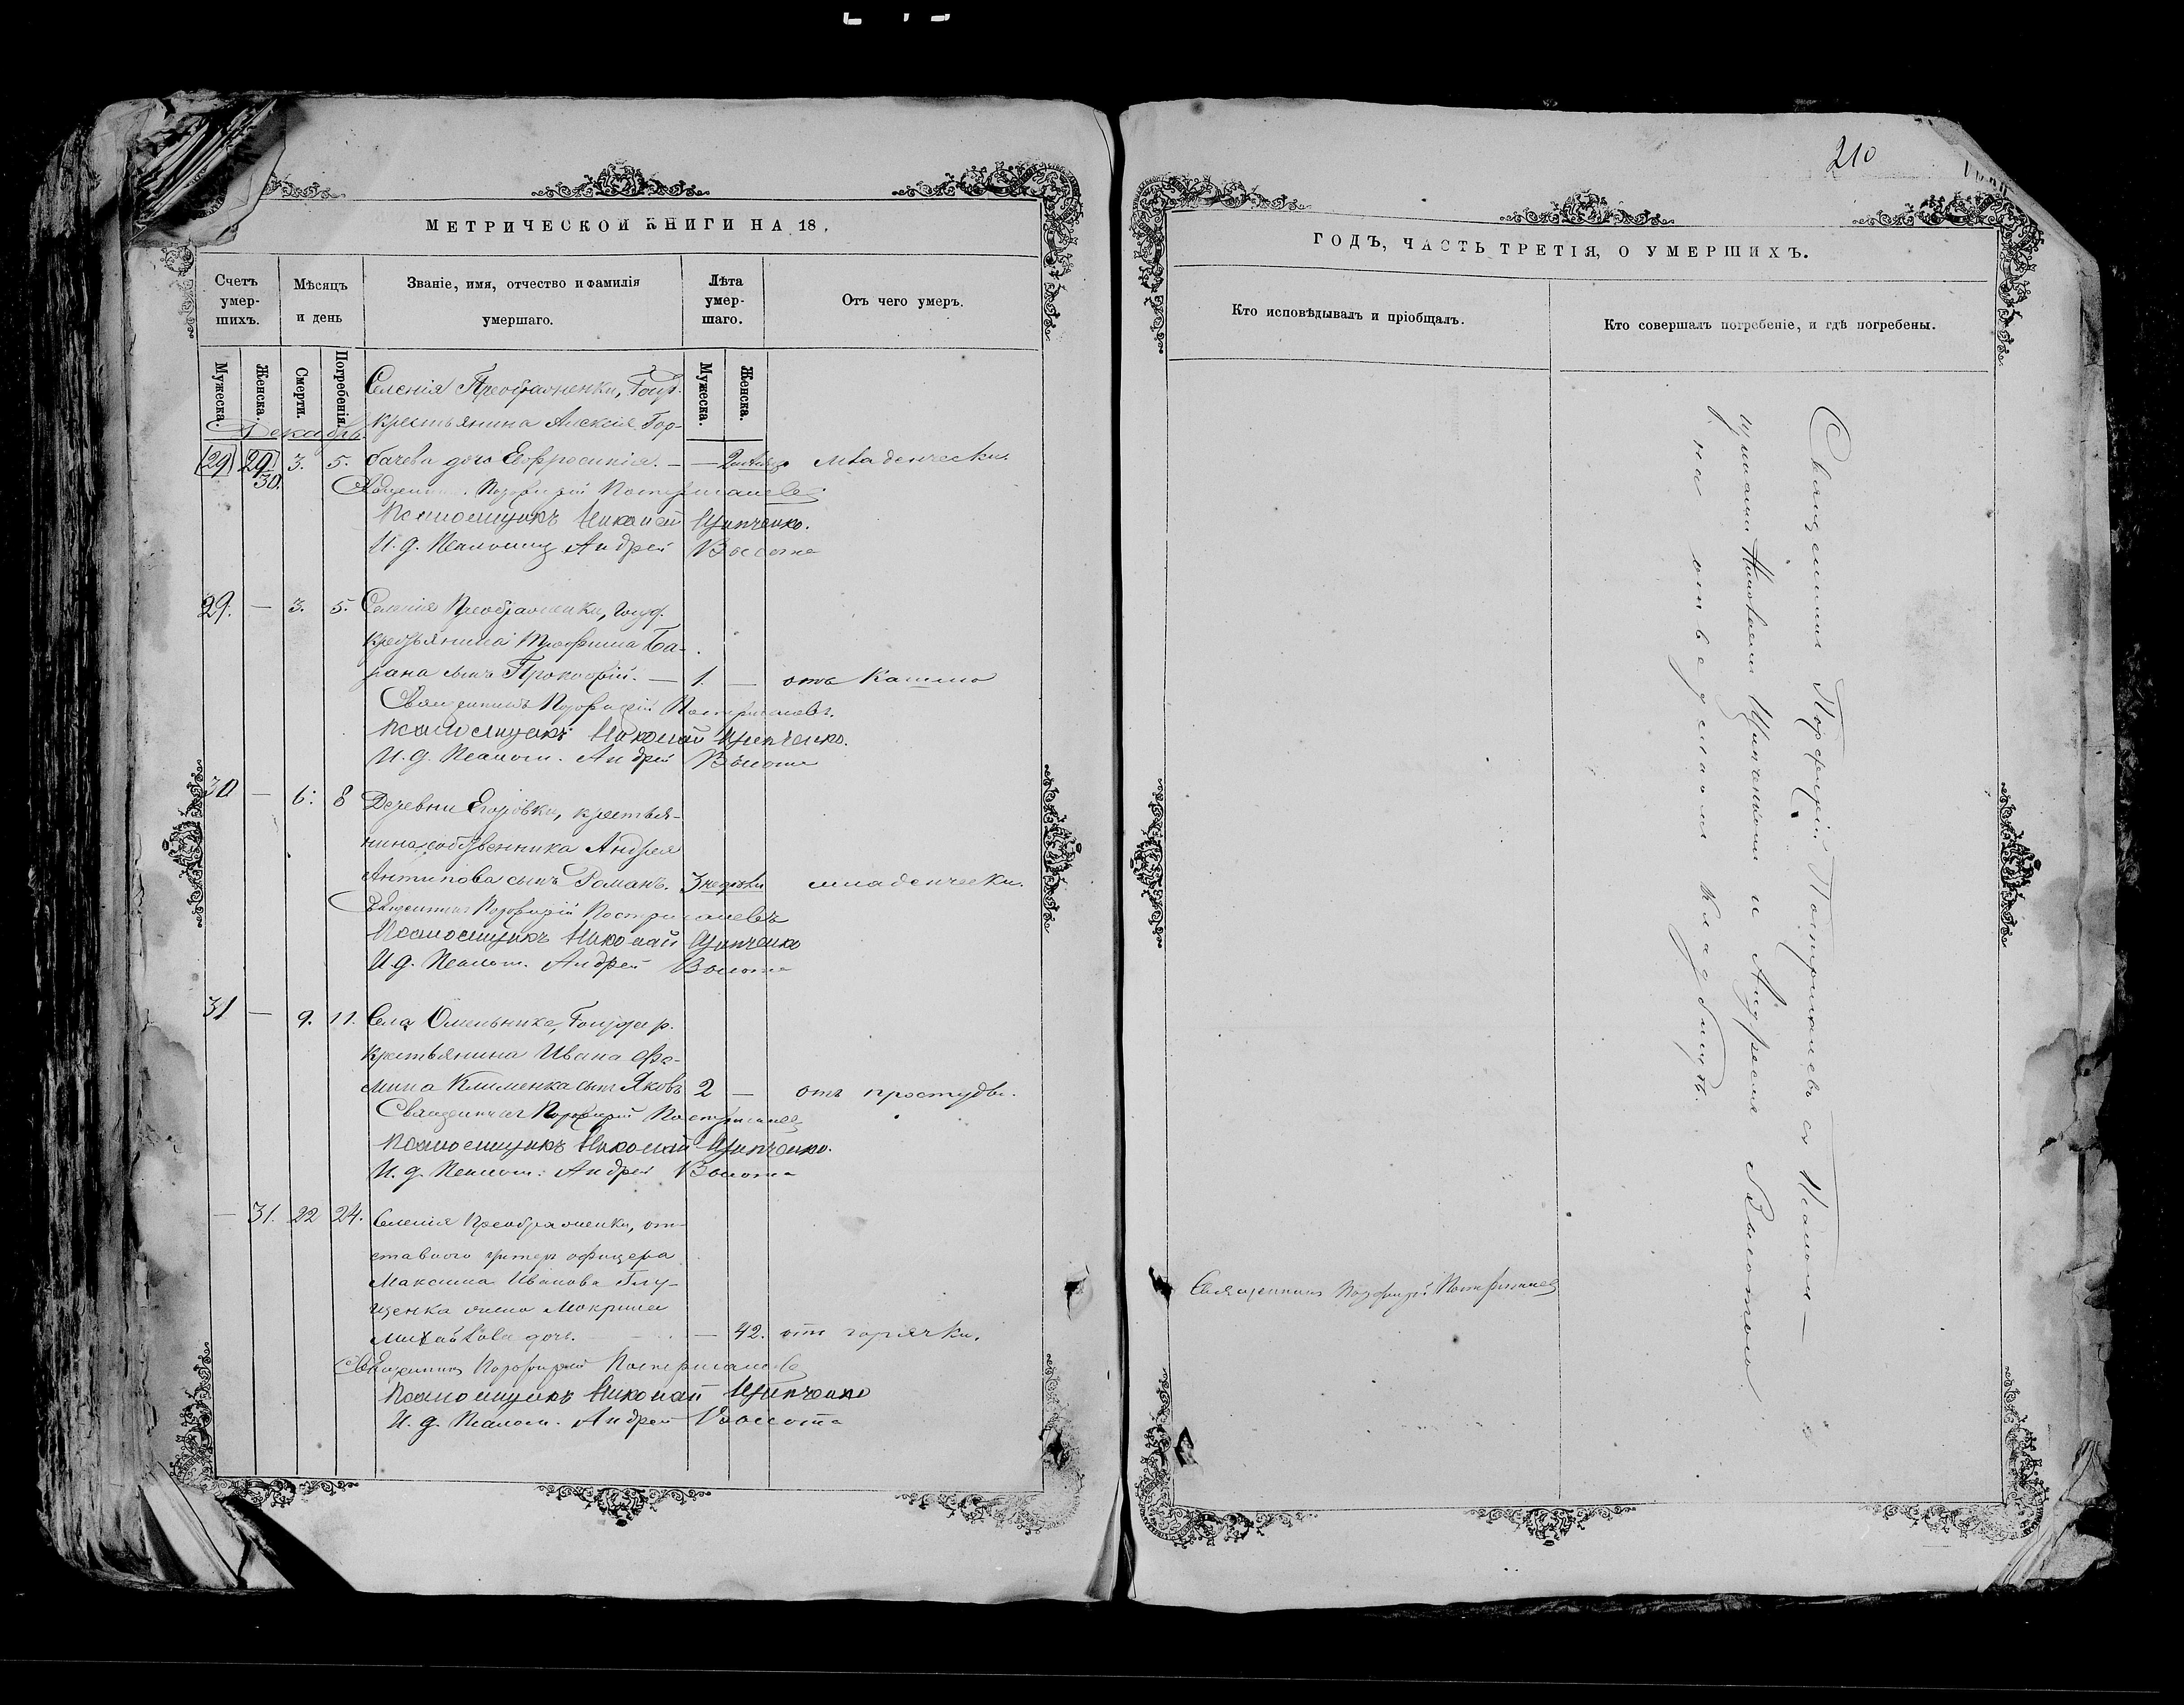 210
МЕТРИЧЕСКОЙ КНИГИ НА 18 .
Счетъ умер-шихъ.
Мѣсяцъ и день
Званіе, имя, отчество и фамилія умершаго.
Лѣта умер-шаго.
Отъ чего умеръ.
Мужеска. Женска. Смерти. Погребенія. Мужеска. Женска.
Декабрь.
Селенія Преображенки, Госуд.
крестьянина Алексія Гор-
29 29 30. 3. 5. бачева дочь Евфросинія. — — 2 младенчески.
Священникъ Порфирій
Псаломщикъ Николай Щипченко.
И. д. Псаломщ. Андрей Высота
29. — 3. 5. Селенія Преображенки, Госуд.
крестьянина Трофима Ба-
рана сынъ Прокофій. — 1. — отъ Кашлю
Священникъ Порфирій
Псаломщикъ Николай Щипченко.
И. д. Псалом. Андрей Высота
30 — 6. 8 Деревни Егоровки, крестья-
нина собственника Андрея
Антипова сынъ Романъ. 3 недѣли младенчески.
Священникъ Порфирій
Псаломщикъ Николай Щипченко
И. д. Псалом. Андрей Высота
31 — 9. 11. Села Омельника, Государ.
крестьянина Ивана Фо-
мина Клименка сынъ Яковъ 2 — отъ простуды.
Священникъ Порфирій
Псаломщикъ Николай Щипченко.
И. д. Псалом: Андрей Высота
— 31. 22 24. Селенія Преображенки, от-
ставного унтеръ офицера
Максима Иванова Глу-
щенка жена Мокрина
Михайлова дочь. — 42. отъ горячки.
Священникъ Порфирій
Псаломщикъ Николай Щипченко
И. д. Псалом. Андрей Высота
ГОДЪ, ЧАСТЬ ТРЕТІЯ, О УМЕРШИХЪ.
Кто исповѣдывалъ и пріобщалъ.
Кто совершалъ погребеніе, и гдѣ погребены.
Священникъ Порфирій
Священникъ Порфирій съ Псалом-
щиками Николаемъ Щипченкомъ и Андреемъ Высотою
на отведенномъ кладбищѣ.